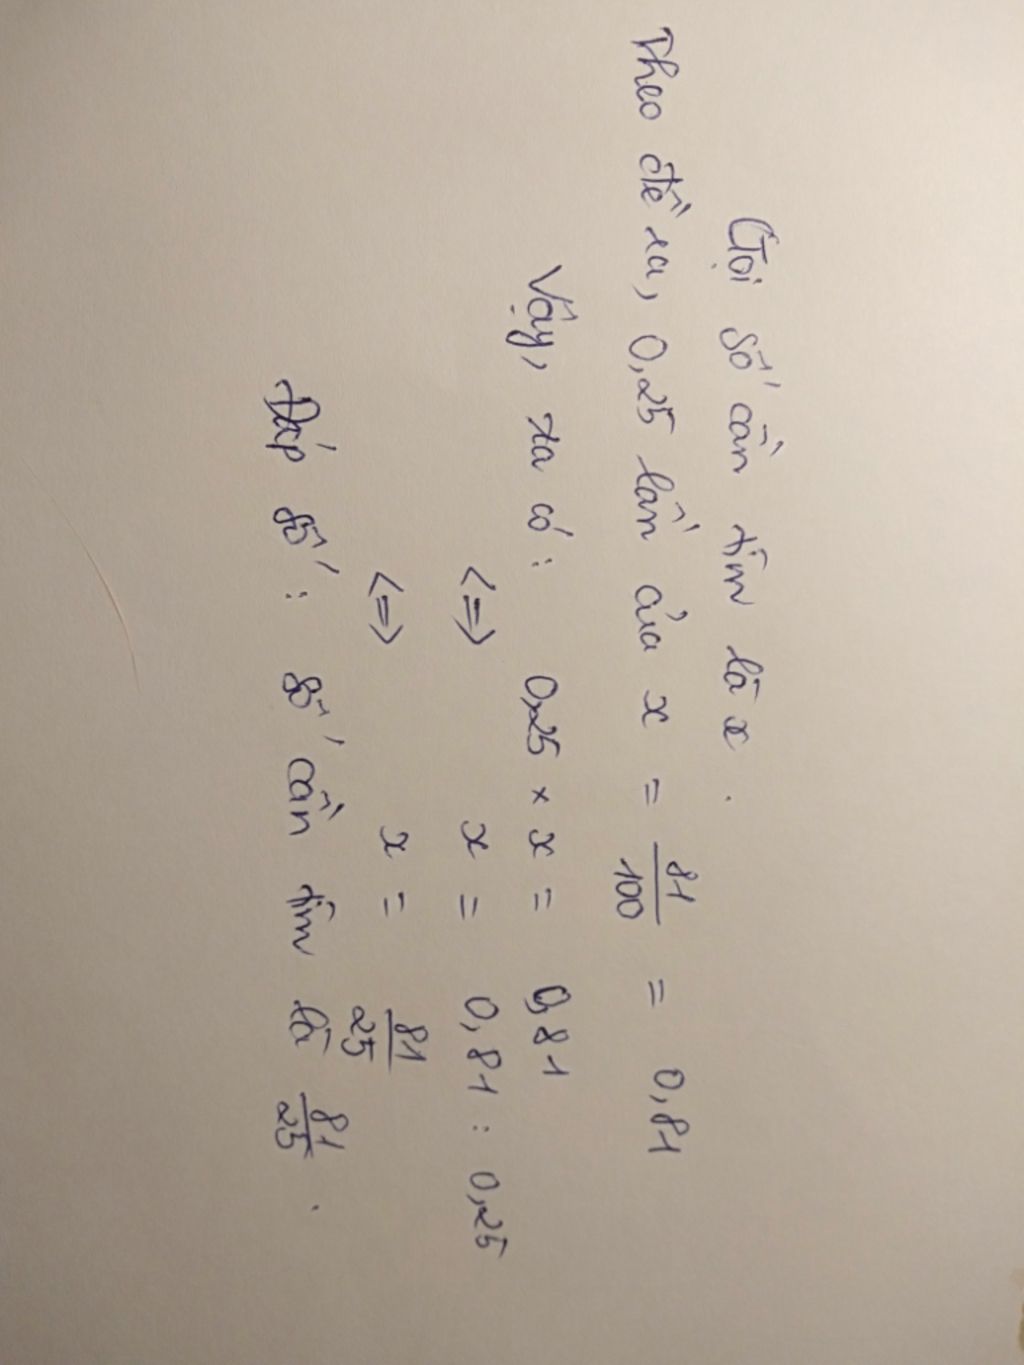 Gọi số cần tìm là x.
Theo đề ra, 0,25 lần của x = 81/100 = 0,81
Vậy, ta có: 0,25 × x = 0,81
<=> x = 0,81 : 0,25
<=> x = 81/25
Đáp số: số cần tìm là 81/25.